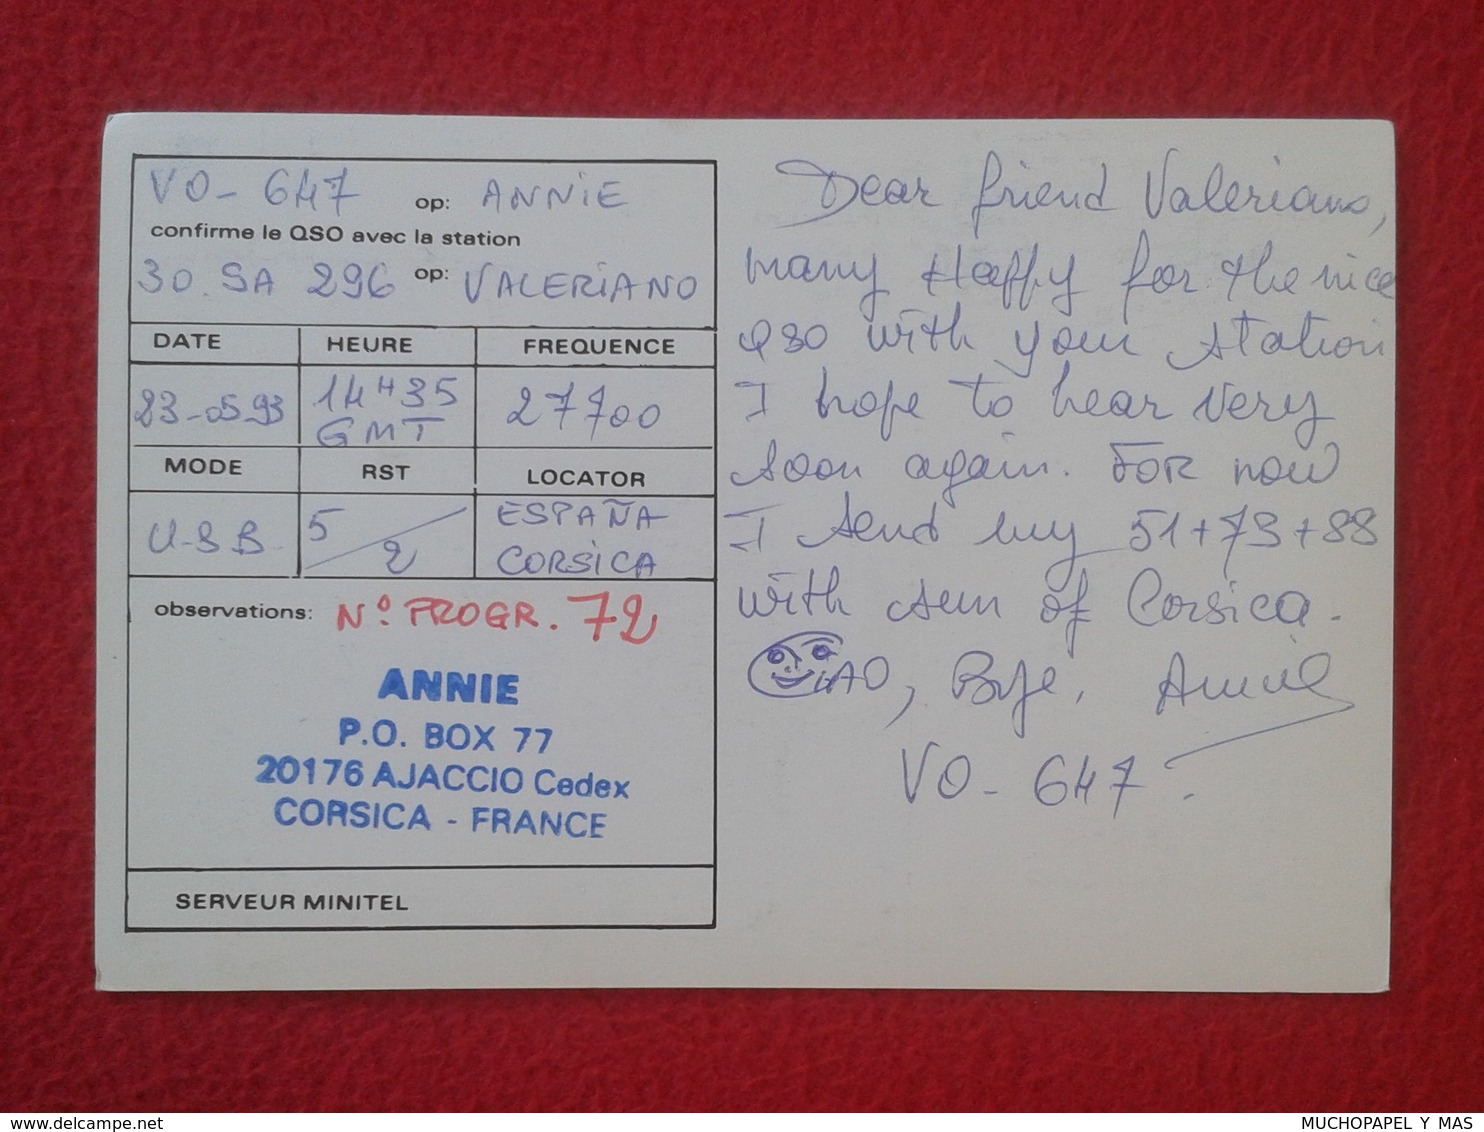 VO-647 op: ANNIE
confirme le QSO avec la station
30 SA 296 op: VALERIANO
DATE HEURE FREQUENCE
23-05-93 14H35 GMT 27700
MODE RST LOCATOR
U-S-B 5/2 ESPAÑA
CORSICA
observations: Nº PROGR. 72
ANNIE
P.O. BOX 77
20176 AJACCIO Cedex
CORSICA - FRANCE
SERVEUR MINITEL
Dear friend Valeriano,
many Happy for the nice
QSO with your station
I hope to hear very
soon again. FOR now
I send my 51+73+88
with sun of Corsica.
CiAO, Bye. Annie
VO-647
delcampe.net
MUCHOPAPEL Y MAS